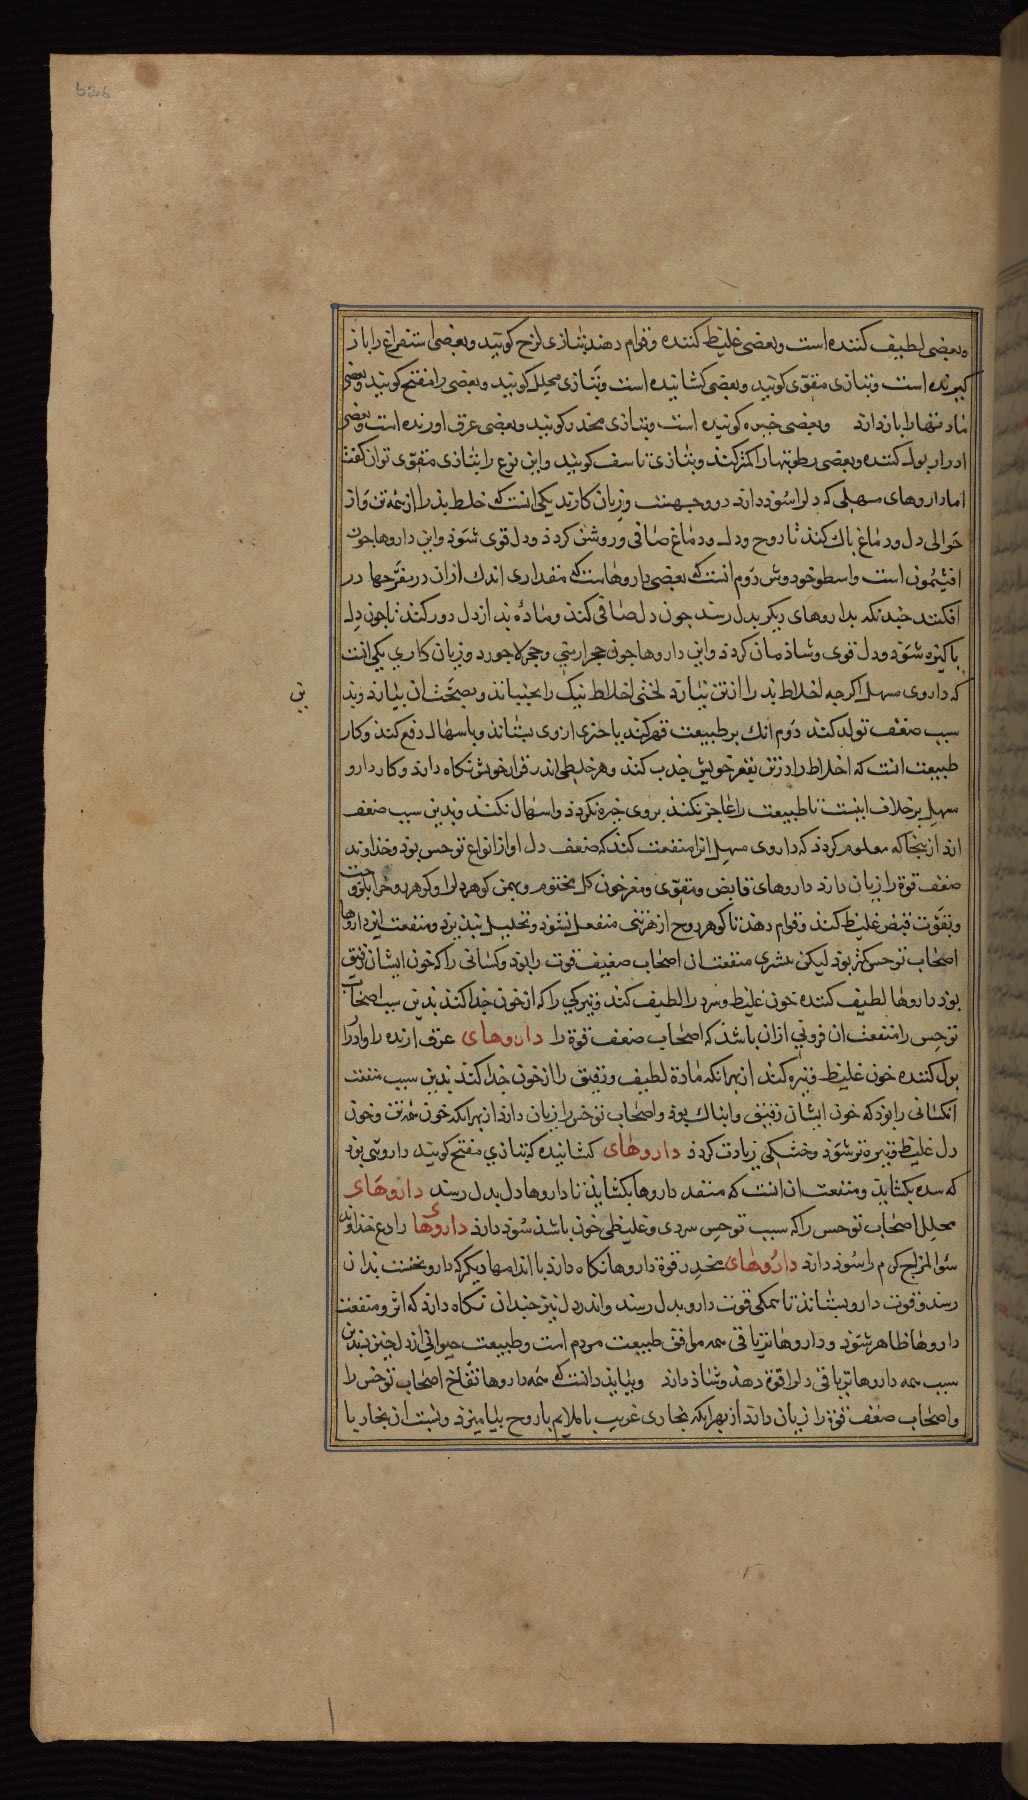 وبعضی لطیف کننده است وبعضی غلیظ کننده وقوام دهند بتازی لزج کویند وبعضی استفراغ را باز
کیرنده است وبتازی مقوّی کویند وبعضی کشاینده است وبتازی محلل کویند وبعضی را مفتح کویند وبعضی
مادتها را باز دارد وبعضی خیره کونده است وبتازی مخدر کویند وبعضی عرق اورنده است وبعضی
ادرار بول کننده وبعضی رطوبتها را کمتر کند وبتازی ناسف کویند واین نوع را بتازی مقوّی توان کفت
اما داروهای مسهلی که دل را سود دارد دو وجهست وزیان کارند یکی انست که خلط بد را از همه تن واز
حوالی دل ودماغ پاک کند تا روح ودل ودماغ صافی وروشن کردد ودل قوی شود واین داروها چون
افتیمون است واسطوخودوش دوم انست که بعضی داروهاست که مقداری اندک ازان در مفرّحها در
افکنند چندنکه بداروهای دیکر بدل رسد چون دل صافی کند ومادهٔ بد از دل دور کند تا چون دل
پاکیزه شود ودل قوی وشاذمان کردد واین داروها چون حجر ارمنی وحجر لاجورد وزیان کاری یکی انت
که داروی مسهل اکرچه اخلاط بد را از تن بیارد لختی اخلاط نیک را بجنباند وبصحبت ان بیارد وبد
ین
سبب ضعف تولد کند دوم انک بر طبیعت قهر کند یا خری از وی بستاند وباسهال دفع کند وکار
طبیعت انست که اخلاط را در تن بقعر خویش جذب کند وهر خلطی اندر قرار خویش نکاه دارد وکار دارو
مسهل بر خلاف اینست تا طبیعت را عاجز نکند بروی خیره نکردد واسهال نکند وبدین سبب ضعف
ارد از ینجا که معلوم کردد که داروی مسهل انرا منفعت کند که ضعف دل او از انواع توحس بود وخداوند
ضعف قوة را زیان دارد داروهای قابض ومقوّی ومفرحون کل مختوم وبهمن کوهر دل را وکوهر روح را بلزو
جت
وبقوّت قبض غلیظ کند وقوام دهند تا کوهر روح از هرتنی منفعل نشود وتحلیل نپذیرد ومنفعت این داروها
اصحاب توحس کمتر بود لیکن بیشری منفعت ان اصحاب ضعیف قوت را بود وکسانی را که خون ایشان رقیق
بود داروها لطیف کننده خون غلیظ وسرد را لطیف کند وتیرکی را که از خون جدا کند بدین سبب اصحاب
توحس را منفعت ان فزونی ازان باشد که اصحاب ضعف قوة را داروهای عرق ارنده را وادرار
بول کننده خون غلیظ وتیره کند از بهر انکه مادة لطیف ورقیق را از خون جدا کند بدین سبب منفعت
انکسانی را بود که خون ایشان رقیق وابناک بود واصحاب توحس را زیان دارد از بهر انکه خون همه تن وخون
دل غلیظ وتیره تر شود وخشکی زیادت کردد داروهای کشاینده که بتازی مفتح کویند داروئی بود
که سده بکشاید ومنفعت ان انست که منفد داروها بکشاید تا داروها دل بدل رسند داروهای
محلل اصحاب توحس را که سبب توحس سردی وغلیظی خون باشد سود دارد داروهای رادع خداوند
سوالمزاج کرم را سود دارد داروهای مخدر قوة داروها نکاه دارد با اندامها دیکر که دارو نخست بدان
رسد وقوت دارو بستاند تا همکی قوت دارو بدل رسد واندر دل نیز چندان نکاه دارد که اثر ومنفعت
داروها ظاهر شود وداروها تریاقی همه موافق طبیعت مردم است وطبیعت حیوانی از دل خیزد بدین
سبب همه داروها تریاقی دل را قوة دهد وشاد دارد وبباید دانست که همه داروها نفّاخ اصحاب توحس را
واصحاب ضعف قوة را زیان دارد از بهر انکه بخاری غریب با ملایم با روح بیامیزد وبسبب ان بخار با